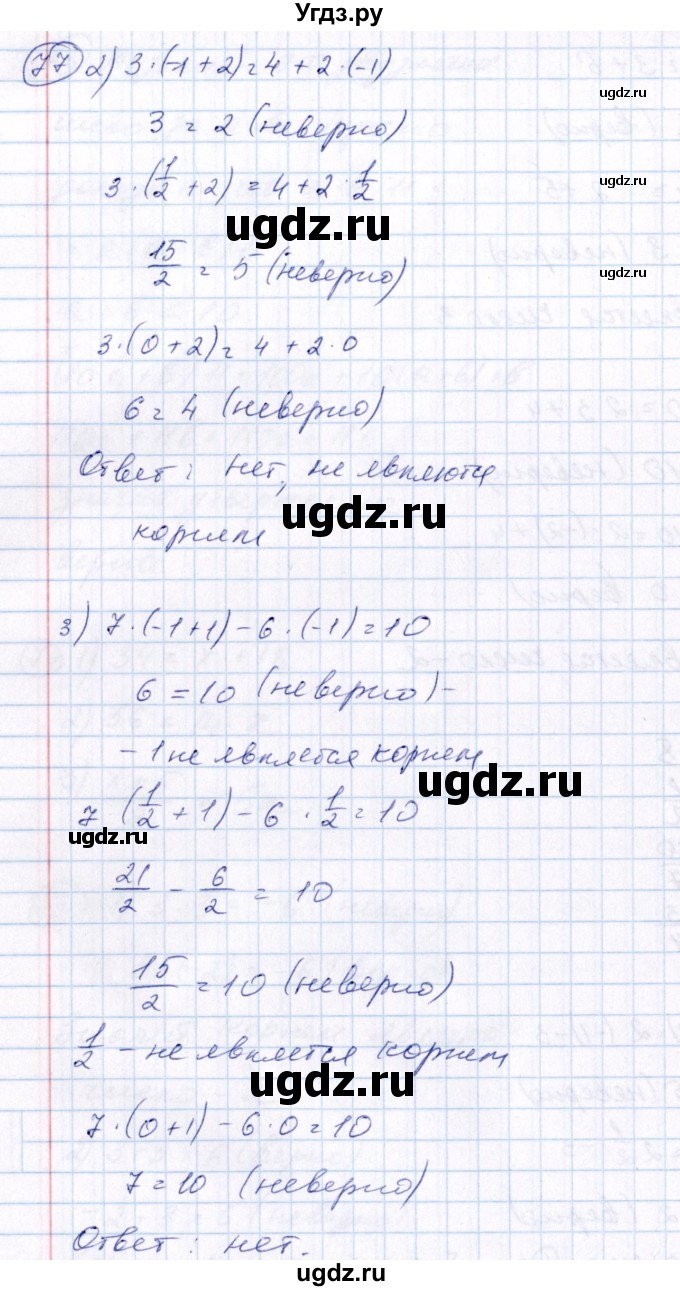 Угдз.ру
77 2) 3·(-1+2)=4+2·(-1)
ugdz.ru
3=2 (неверно)
ugdz.ru
3·(1/2+2)=4+2·1/2
ugdz.ru
15/2=5 (неверно)
ugdz.ru
3·(0+2)=4+2·0
6=4 (неверно)
ugdz.ru
Ответ: нет, не являются
ugdz.ru
корнем
3) 7·(-1+1)-6·(-1)=10
6=10 (неверно)-
-1 не является корнем
ugdz.ru
7 (1/2+1)-6·1/2=10
ugdz.ru
21/2-6/2=10
15/2=10 (неверно)
1/2 - не является корнем
ugdz.ru
7·(0+1)-6·0=10
7=10 (неверно)
ugdz.ru
Ответ: нет.
ugdz.ru